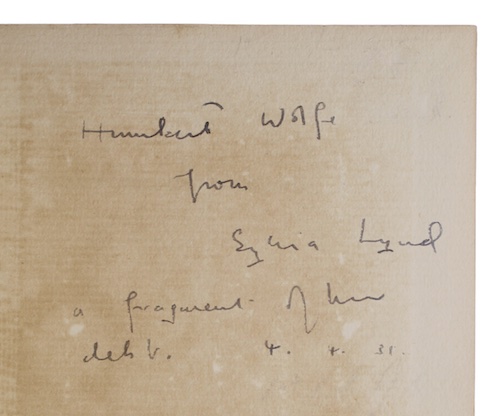 Humbert Wolfe
from
Sylvia Lynd
a fragment of her
debt. 4. 4. 31.